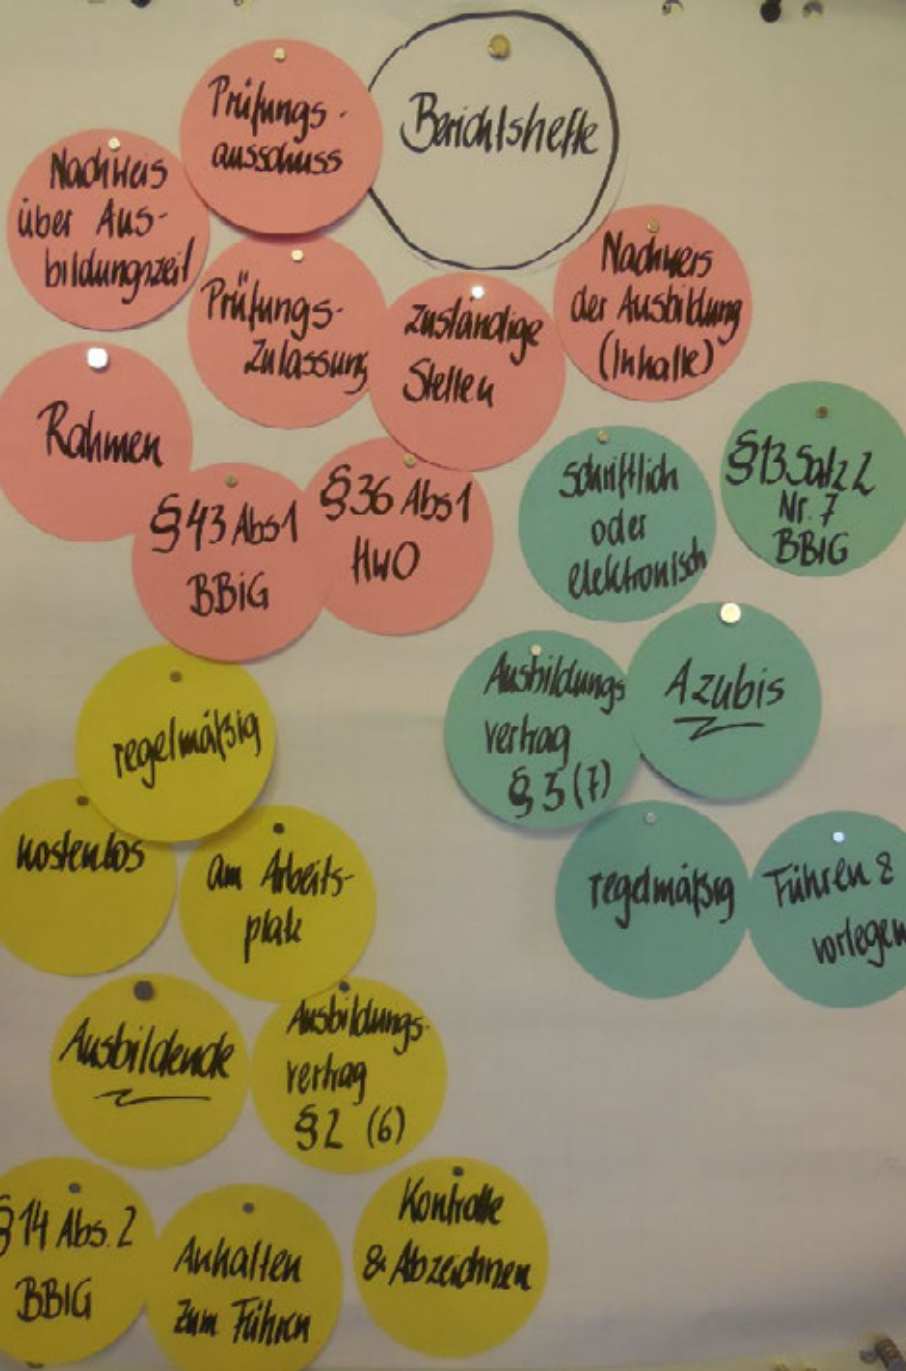 Berichtshefte
Prüfungs-
ausschuss
Nachweis
über Aus-
bildungszeit
Prüfungs-
Zulassung
zuständige
Stellen
Nachweis
der Ausbildung
(Inhalte)
Rahmen
§43 Abs1
BBiG
§36 Abs1
HwO
schriftlich
oder
elektronisch
§13 Satz 2
Nr. 7
BBiG
Ausbildungs
vertrag
§ 3 (7)
Azubis
regelmäßig
Führen &
vorlegen
regelmäßig
kostenlos
am Arbeits-
platz
Ausbildende
Ausbildungs-
vertrag
§2 (6)
§14 Abs. 2
BBIG
Anhalten
zum Führen
Kontrolle
& Abzeichnen